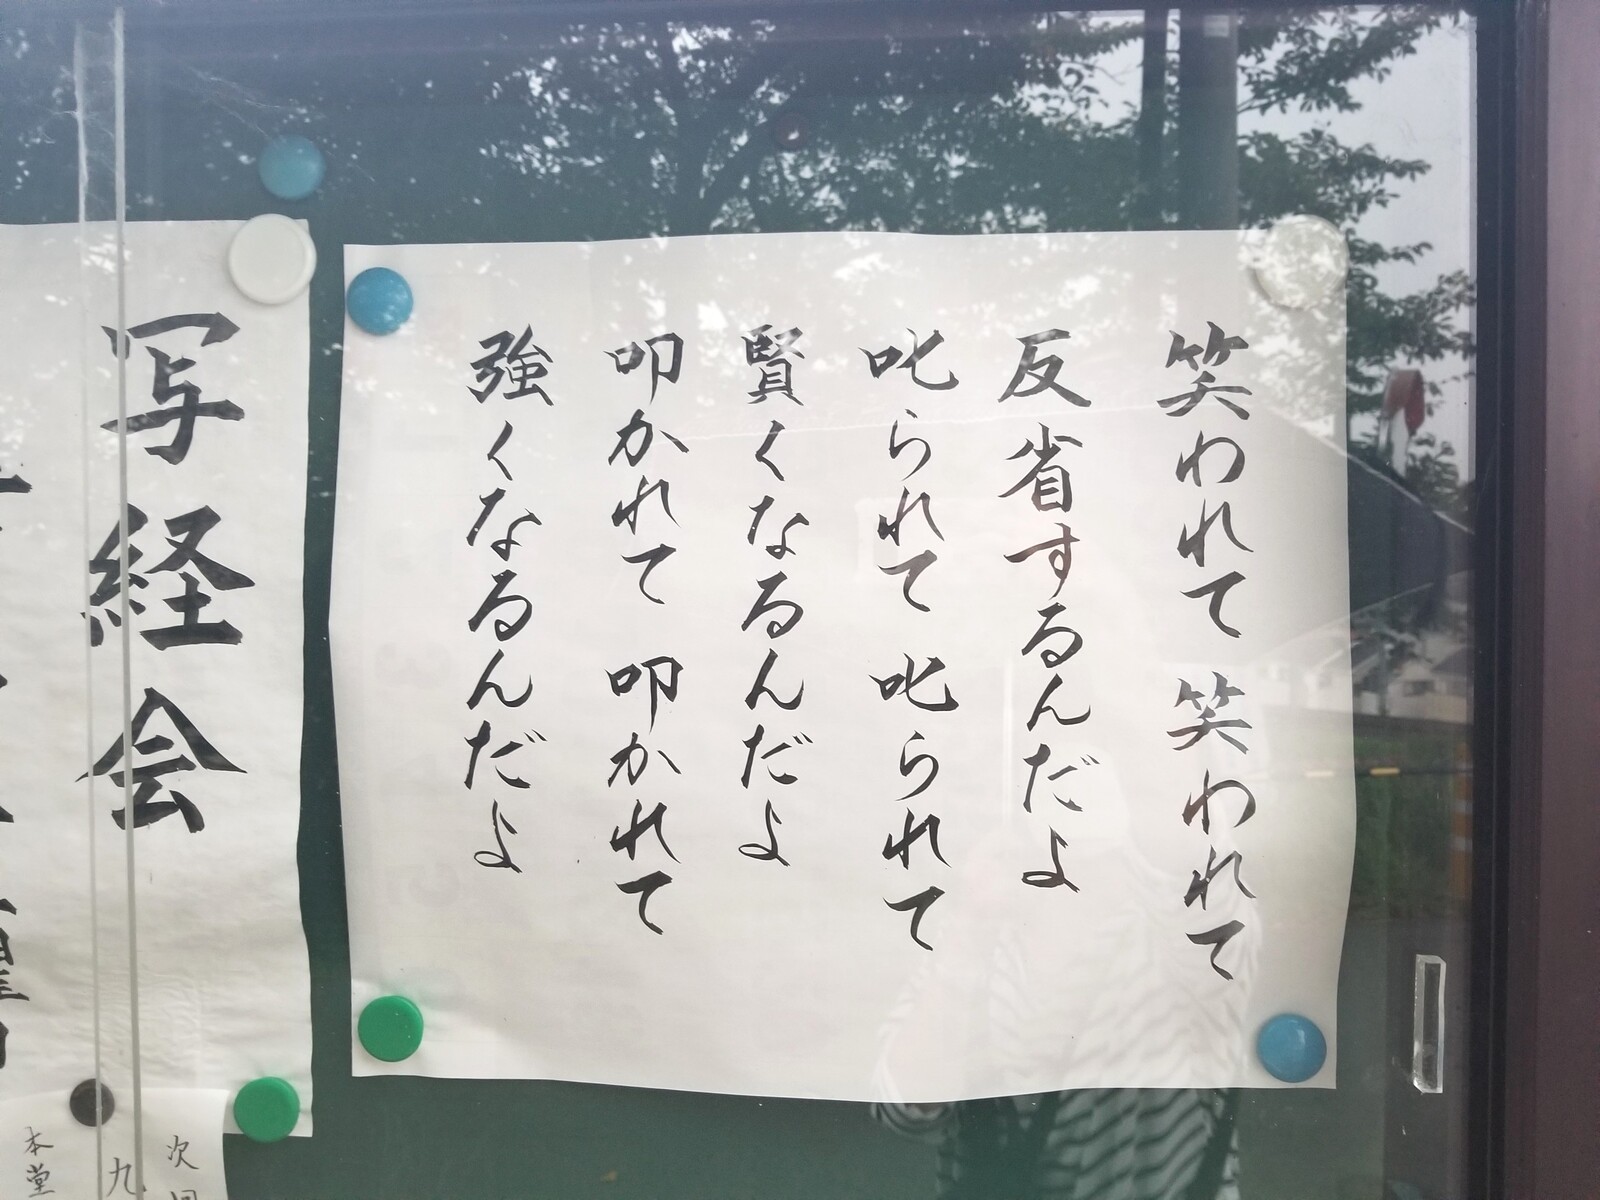 笑われて 笑われて
反省するんだよ
叱られて 叱られて
賢くなるんだよ
叩かれて 叩かれて
強くなるんだよ
写経会
次回
九
本堂